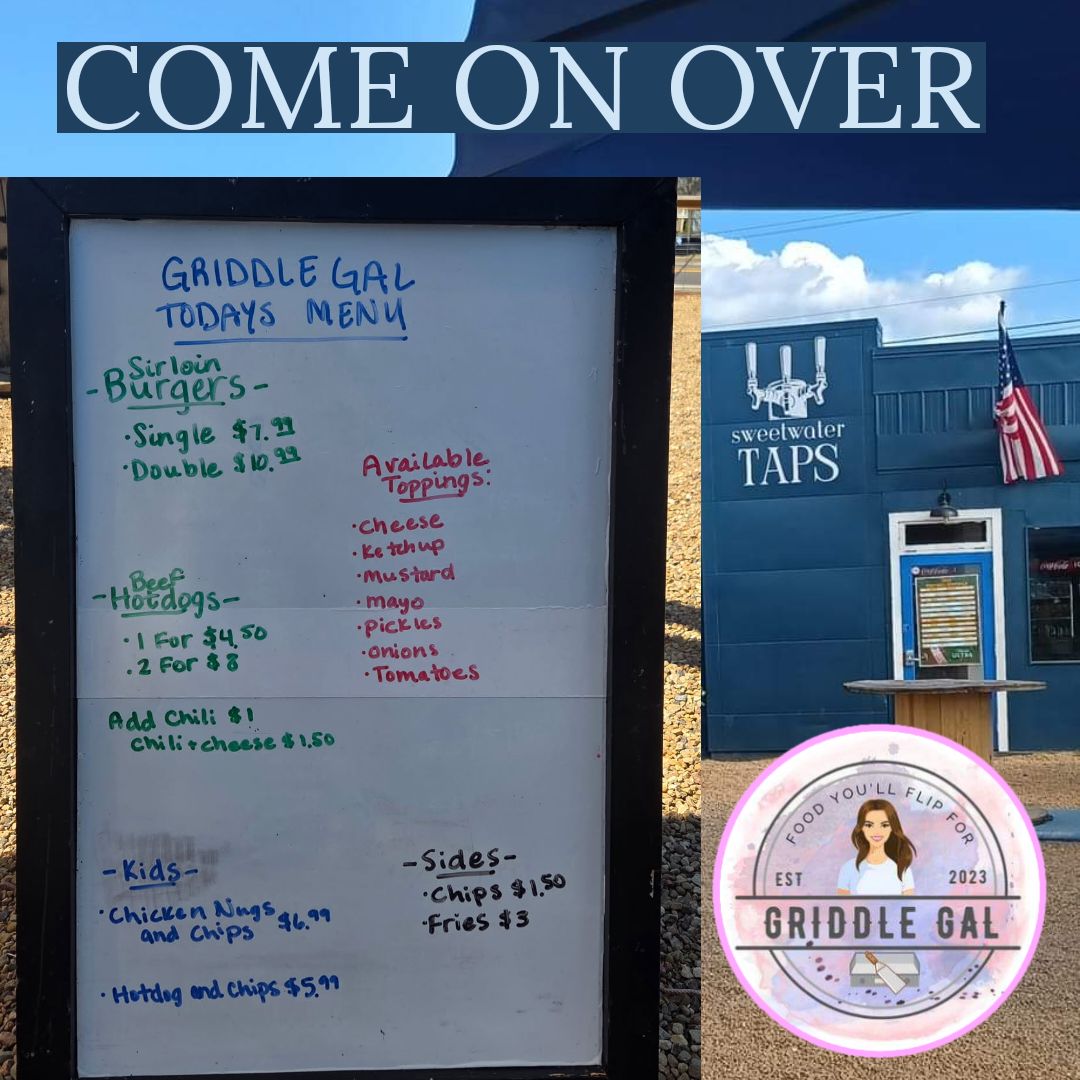 COME ON OVER
GRIDDLE GAL
TODAYS MENU
Sirloin
-Burgers-
·Single $7.99
·Double $10.99
Available
Toppings:
·Cheese
·Ketchup
·Mustard
·mayo
·Pickles
·onions
·Tomatoes
Beef
-Hotdogs-
·1 For $4.50
·2 For $8
Add Chili $1
Chili+cheese $1.50
-Kids-
·Chicken Nugs $6.99
and Chips
·Hotdog and Chips $5.99
-Sides-
·Chips $1.50
·Fries $3
sweetwater
TAPS
Coca-Cola
ULTRA
FOOD YOU'LL FLIP FOR
EST 2023
GRIDDLE GAL